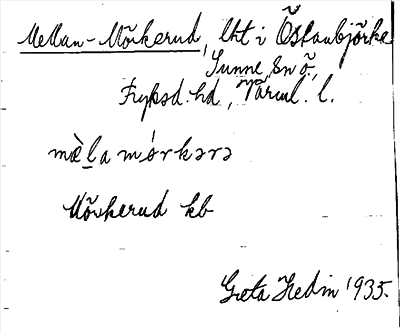 Mellan-Mörkerud, lht i Östanbjörke
Sunne sn ö.,
Fryksd. hd, Värml. l.
mὲl̠a mórkərə
Mörkerud kb
Greta Hedin 1935.